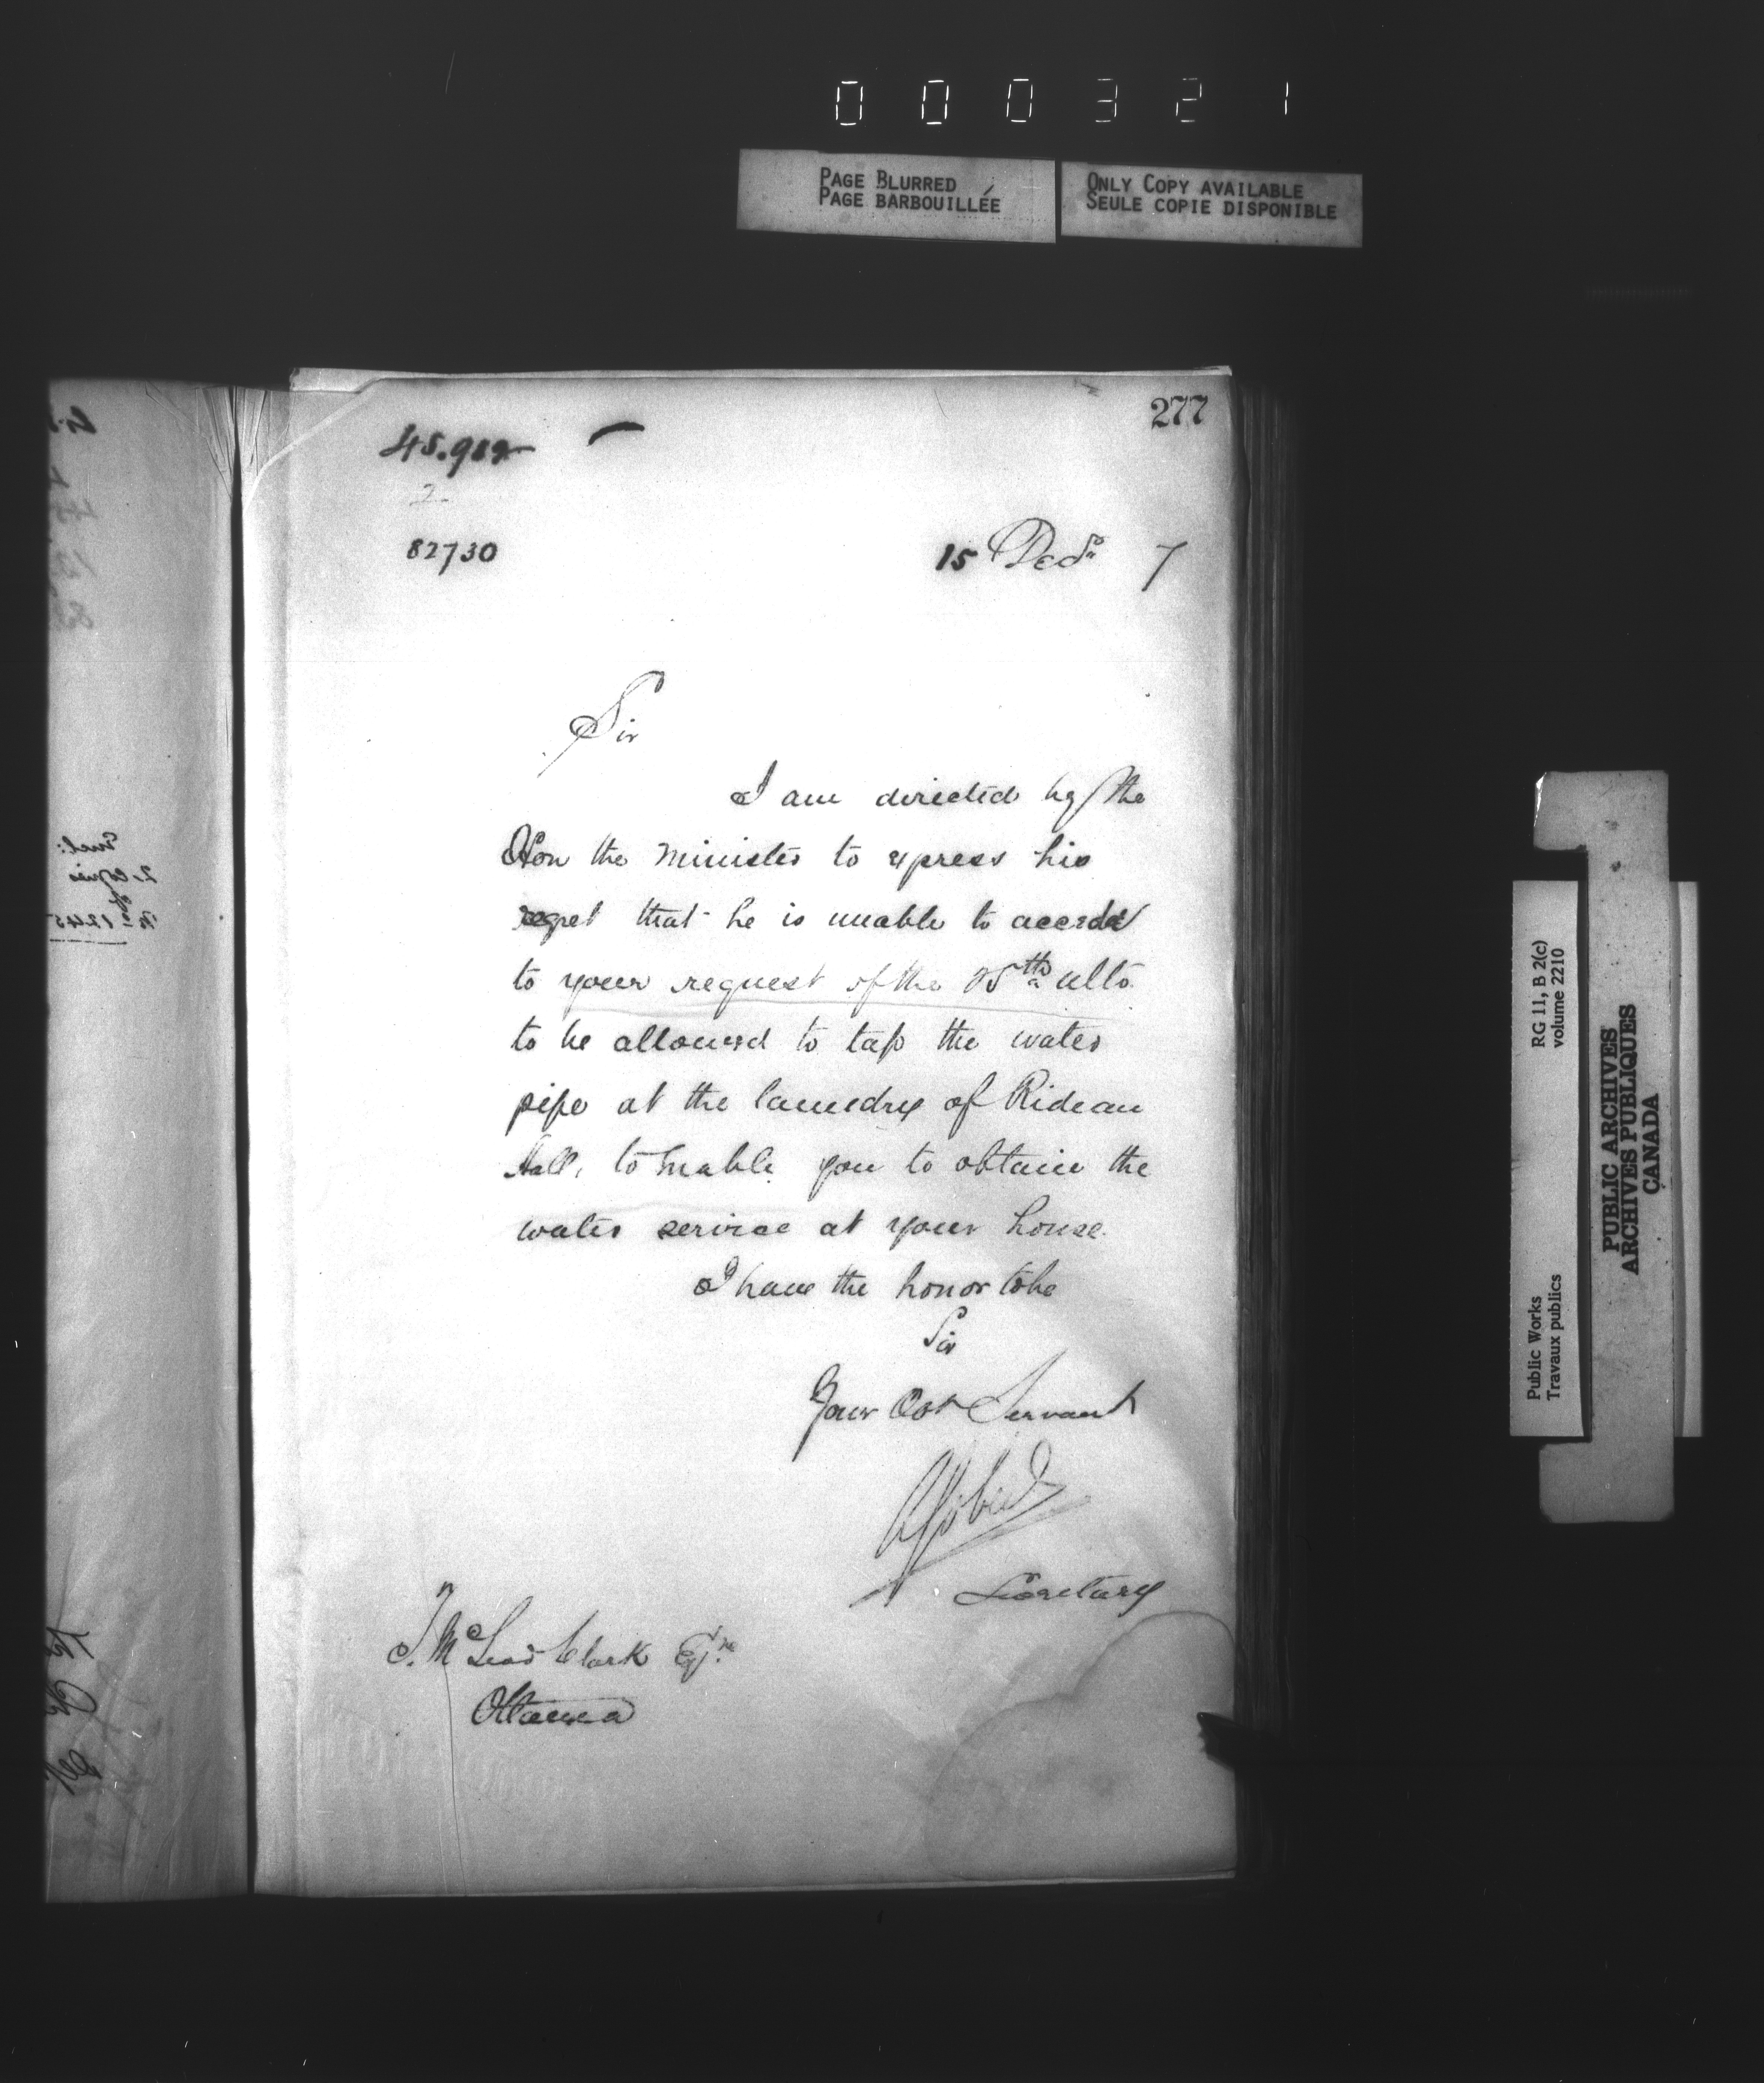 000321
PAGE BLURRED
PAGE BARBOUILLÉE
ONLY COPY AVAILABLE
SEULE COPIE DISPONIBLE
277
45.982
2
82730
15 Decr 7
Sir
I am directed by the
Hon the Minister to express his
regret that he is unable to accede
to your request of the 25th ulto.
to be allowed to tap the water
pipe at the laundry of Rideau
Hall, to enable you to obtain the
water service at your house.
I have the honor to be
Sir
Your Obt Servant
Secretary
McLeod Clark Esqre
Ottawa
Encl:
2 copies
of
No 1245
RG 11, B 2(c)
volume 2210
Public Works
Travaux publics
PUBLIC ARCHIVES
ARCHIVES PUBLIQUES
CANADA